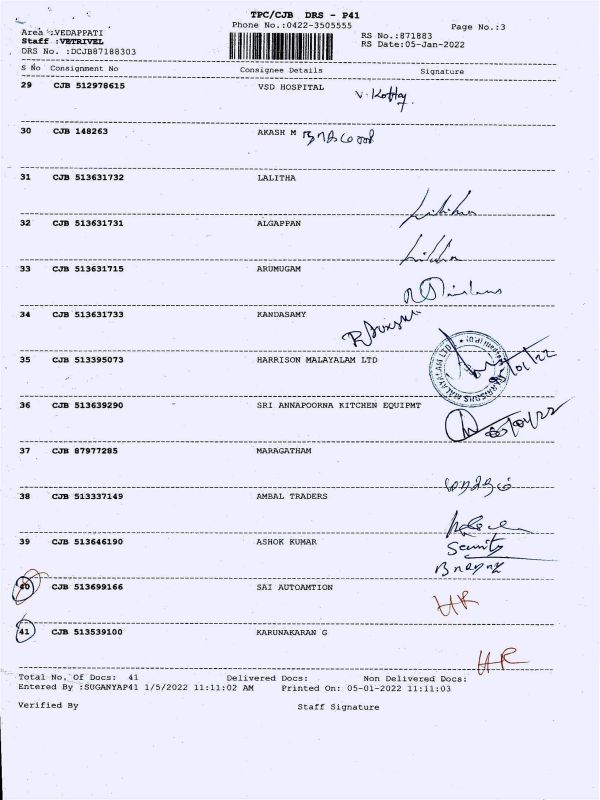 TPC/CJB DRS - P41
Phone No.:0422-3505555
Page No.:3
Area :VEDAPPATI
Staff :VETRIVEL
DRS No. :DCJB87188303
RS No.:871883
RS Date:05-Jan-2022
S No Consignment No Consignee Details Signature
29 CJB 512978615 VSD HOSPITAL
30 CJB 148263 AKASH M
31 CJB 513631732 LALITHA
32 CJB 513631731 ALGAPPAN
33 CJB 513631715 ARUMUGAM
34 CJB 513631733 KANDASAMY
35 CJB 513395073 HARRISON MALAYALAM LTD
36 CJB 513639290 SRI ANNAPOORNA KITCHEN EQUIPMT
37 CJB 87977285 MARAGATHAM
38 CJB 513337149 AMBAL TRADERS
39 CJB 513646190 ASHOK KUMAR
Security
40 CJB 513699166 SAI AUTOAMTION
HR
41 CJB 513539100 KARUNAKARAN G
HR
Total No. Of Docs: 41 Delivered Docs: Non Delivered Docs:
Entered By :SUGANYAP41 1/5/2022 11:11:02 AM Printed On: 05-01-2022 11:11:03
Verified By Staff Signature